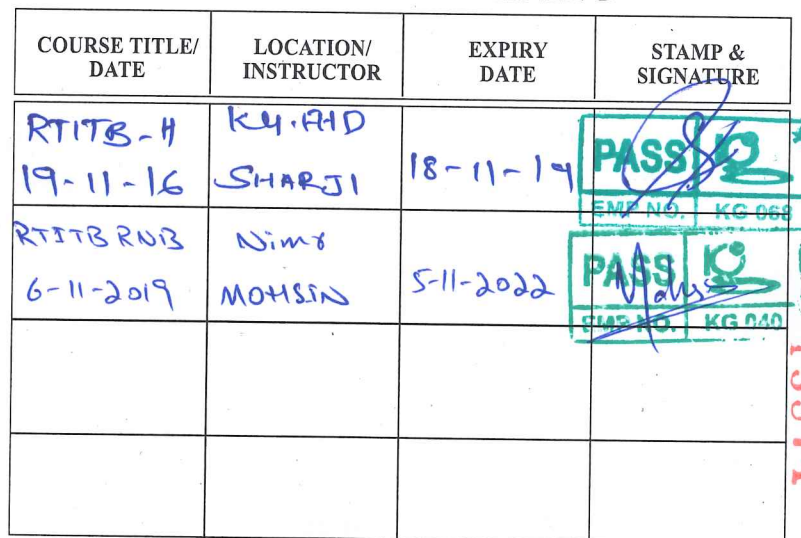 COURSE TITLE/ DATE
LOCATION/ INSTRUCTOR
EXPIRY DATE
STAMP & SIGNATURE
RTITB-H
19-11-16
SHARJI
18-11-19
PASS
EMP NO. KG 068
RTITB RNB
6-11-2019
Nimr
MOHSIN
5-11-2022
PASS
EMP NO. KG 040